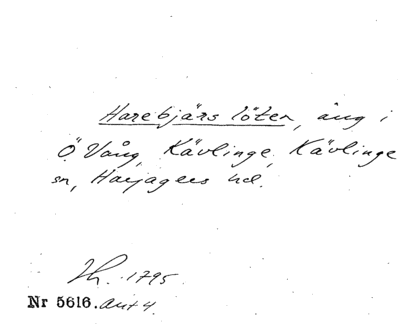 Harebjärs löten, äng i
Ö. Vång, Kävlinge, Kävlinge
sn, Harjagers hd.
Th. 1795.
Nr 5616. ant 4.